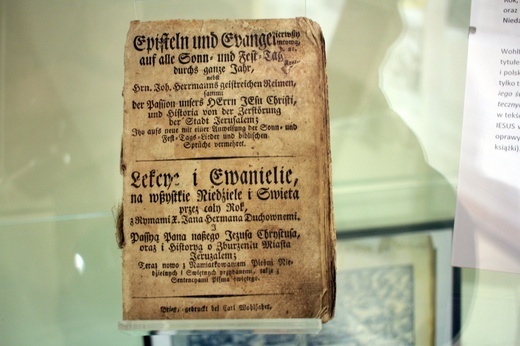 Episteln und Evangel
auf alle Sonn- und Fest-Tag
durchs ganze Jahr,
nebst
Hrn. Joh. Herrmanns geistreichen Reimen,
sammt
der Passion unsers HErrn JEsu Christi,
und Historia von der Zerstörung
der Stadt Jerusalem;
Itzo aufs neue mit einer Anweisung der Sonn- und
Fest-Tags-Lieder und biblischen
Sprüche vermehret.
Lekcye i Ewanielie,
na wßystkie Niedziele i Swieta
przez cały Rok,
z Rymami X. Jana Hermana Duchownemi.
Passyą Pana naßego Jezusa Chrystusa,
oraz i Historyą o Zburzeniu Miasta
Jeruzalem;
Teraz nowo z Namiarkowaniem Pieśni Nie-
dzielnych i Swiętnych przydaniem, także z
Sentencyami Pisma świętego.
Brieg, gedruckt bei Carl Wohlfahrt.
oraz
Niedz
Wohlf
tytułe
i polsk
tylko t
jego ś
teczny
w tekś
JESUS w
oprawy
książki)